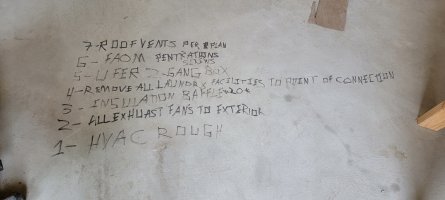 7-ROOF VENTS PER PLAN
6- FAOM PENTRATIONS
SCREWS
5- UFER 2-GANG BOX
4-REMOVE ALL LAUNDRY FACILITIES TO POINT OF CONNECTION
3- INSULATION BAFFLE
2- ALL EXHUAST FANS TO EXTERIOR
1- HVAC ROUGH